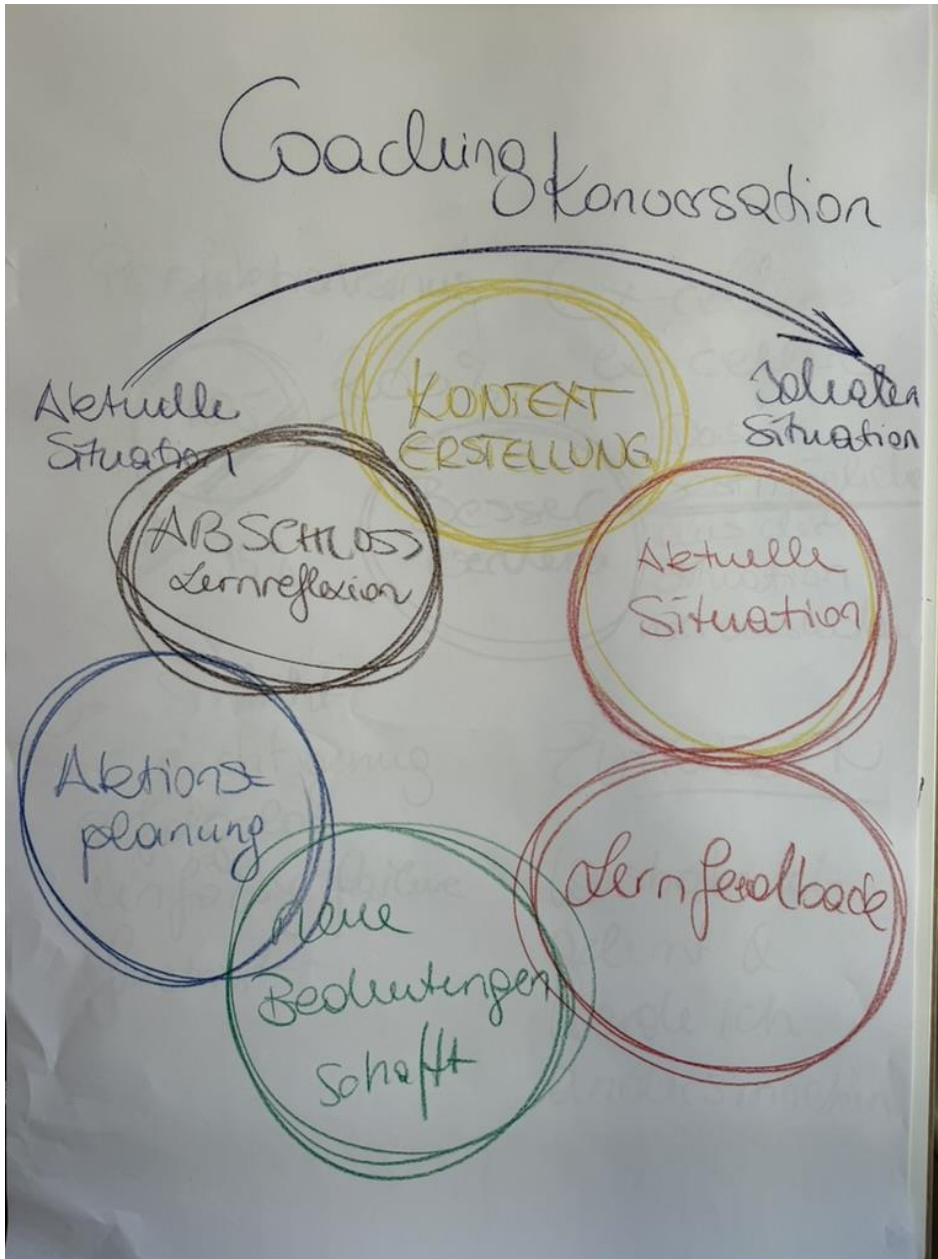 Coaching
Konversation
Aktuelle
Situation
KONTEXT
ERSTELLUNG
Situation
ABSCHLUSS
Lernreflexion
Aktuelle
Situation
Aktions-
planung
Lernfeedback
neue
Bedeutungen
schafft